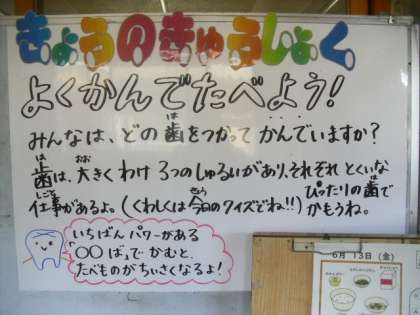 きょうのきゅうしょく
よくかんでたべよう!
みんなは、どの歯をつかって かんでいますか?
歯は、大きくわけ 3つのしゅるいがあり、それぞれ とくいな
仕事があるよ。(くわしくは 今日のクイズでね!!) ぴったりの歯で
かもうね。
いちばんパワーがある
○○ばっでかむと、
たべものがちいさくなるよ!
6月 13日 (金)